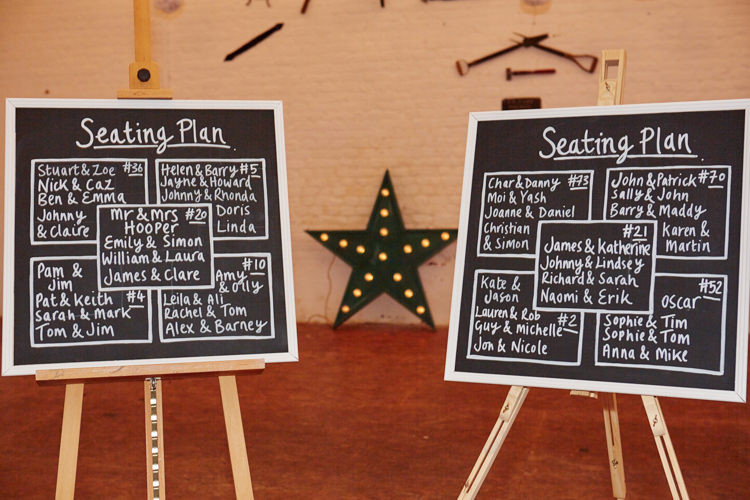 Seating Plan
Stuart & Zoe #36
Nick & Caz
Ben & Emma
Johnny
& Claire
Helen & Barry #5
Jayne & Howard
Johnny & Rhonda
Doris
Linda
Mr & Mrs #20
Hooper
Emily & Simon
William & Laura
James & Clare
Pam &
Jim
Pat & Keith #4
Sarah & Mark
Tom & Jim
#10
Amy &
Olly
Leila & Ali
Rachel & Tom
Alex & Barney
Seating Plan
Char & Danny #73
Moi & Yash
Joanne & Daniel
Christian
& Simon
John & Patrick #70
Sally & John
Barry & Maddy
Karen &
Martin
#21
James & Katherine
Johnny & Lindsey
Richard & Sarah
Naomi & Erik
Kate &
Jason
Lauren & Rob
Guy & michelle #2
Jon & Nicole
#52
Oscar
Sophie & Tim
Sophie & Tom
Anna & Mike